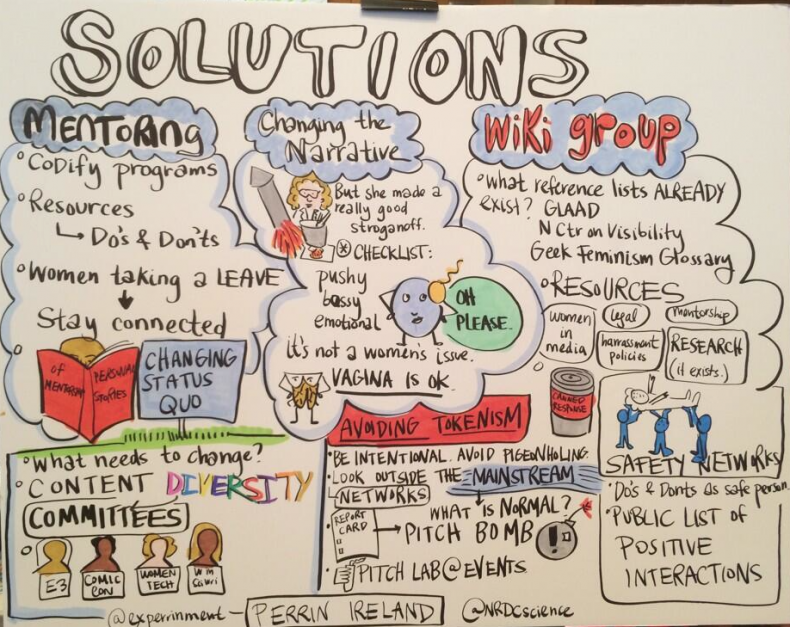 SOLUTIONS
MENTORING
Codify programs
Resources
Do's & Don'ts
Women taking a LEAVE
Stay connected
OF MENTORSHIP
PERSONAL STORIES
CHANGING
STATUS
QUO
What needs to change?
CONTENT DIVERSITY
COMMITTEES
E3
COMIC
CON
WOMEN
TECH
Changing the
Narrative
But she made a
really good
stroganoff.
CHECKLIST:
pushy
bossy
emotional
OH
PLEASE.
it's not a women's issue.
VAGINA IS OK.
AVOIDING TOKENISM
BE INTENTIONAL. AVOID PIGEONHOLING.
LOOK OUTSIDE THE MAINSTREAM
NETWORKS
WHAT IS NORMAL?
REPORT
CARD
PITCH BOMB
!
PITCH LAB@EVENTS
WiKi group
What reference lists ALREADY
exist? GLAAD
N Ctr on Visibility
Geek Feminism Glossary
RESOURCES
women
in
media
legal
mentorship
harrassment
policies
RESEARCH
(it exists.)
CANNED
RESPONSE
SAFETY NETWORKS
Do's & Donts as safe person
PUBLIC LIST OF
POSITIVE
INTERACTIONS
@experrinment - PERRIN IRELAND @NRDCscience